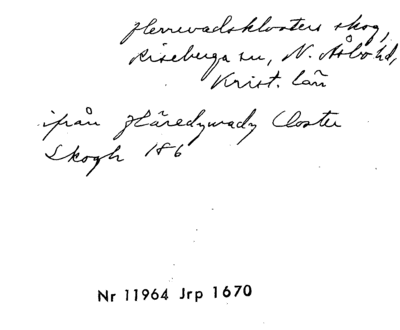 Herrevadsklosters skog,
Riseberga sn, N. Åsbo hd,
Krist. län
ifrån Häredzwadz Closter
Skogh 186
Nr 11964 Jrp 1670